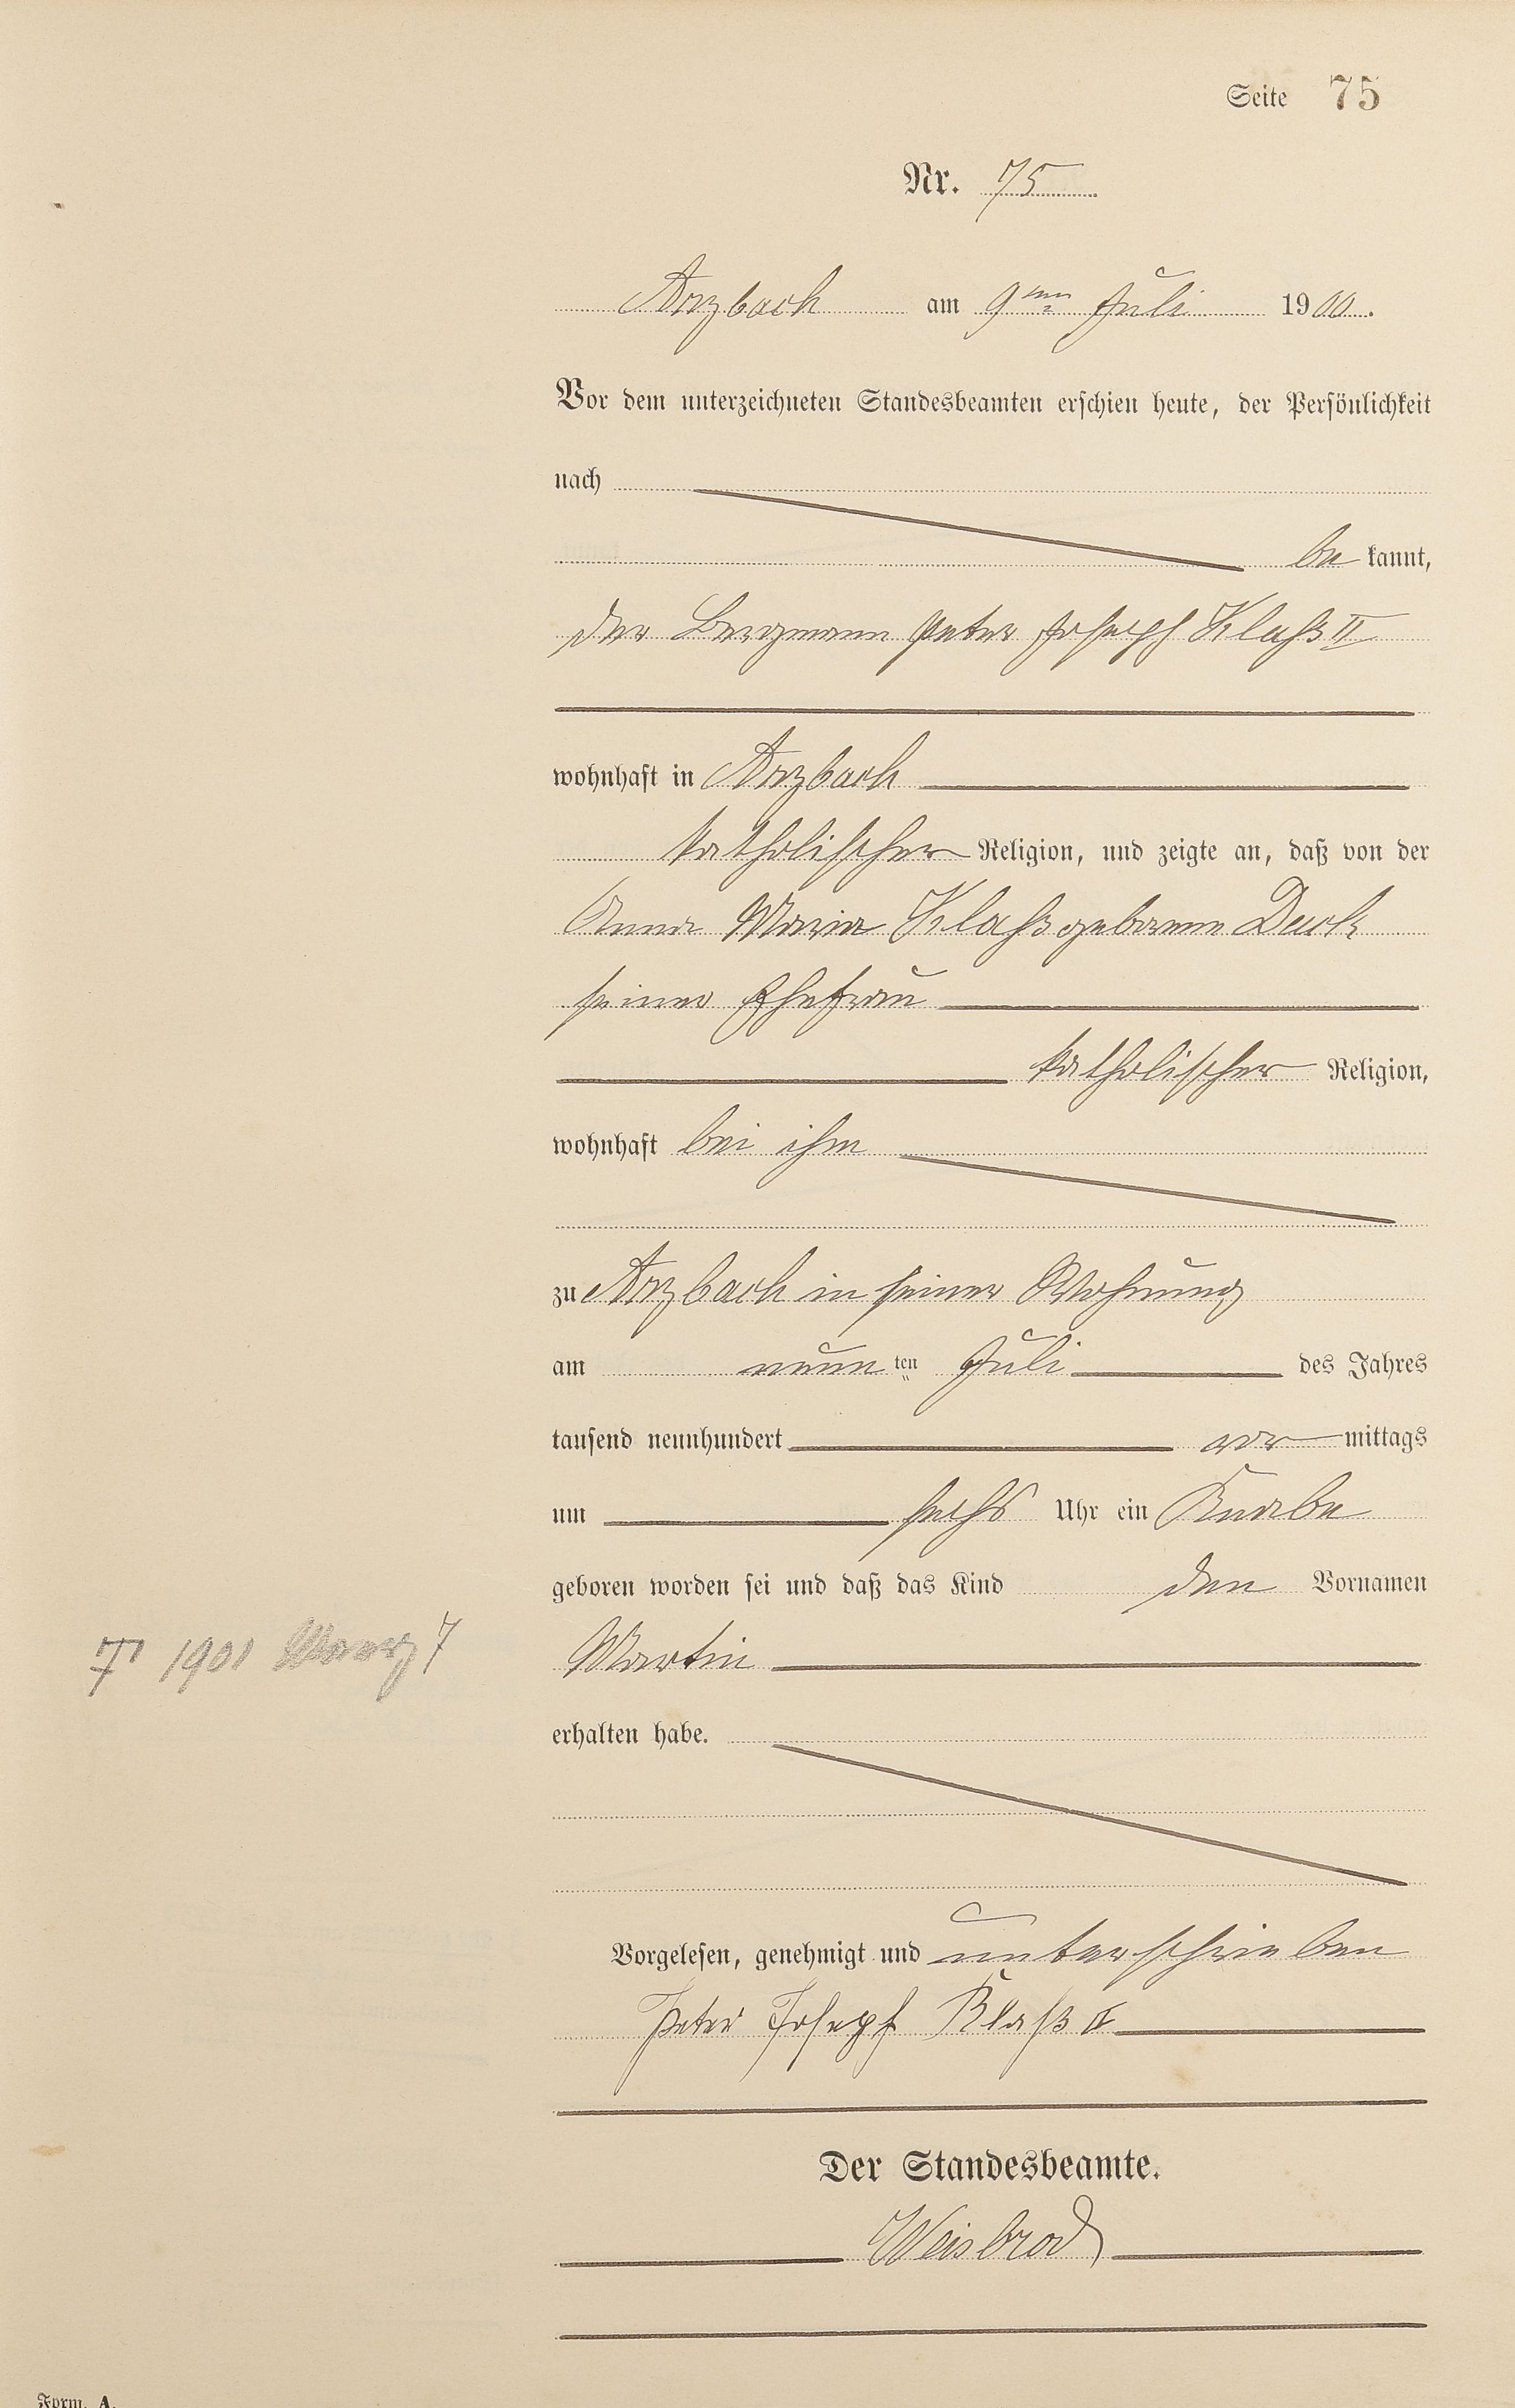 Seite 75
Nr. 75
Arzbach am 9ten Juli 1900.
Vor dem unterzeichneten Standesbeamten erschien heute, der Persönlichkeit
nach
be kannt,
der Bergmann Peter Joseph Klaß II
wohnhaft in Arzbach
katholischer Religion, und zeigte an, daß von der
Anna Maria Klaß geborenen
seiner Ehefrau
katholischer Religion,
wohnhaft bei ihm
zu Arzbach in seiner Wohnung
am neun ten Juli des Jahres
tausend neunhundert vor mittags
um sechs Uhr ein Knabe
geboren worden sei und daß das Kind den Vornamen
† 1901 7
Martin
erhalten habe.
Vorgelesen, genehmigt und unterschrieben
Peter Joseph Klaß II
Der Standesbeamte.
Weisbrod
Form. A.